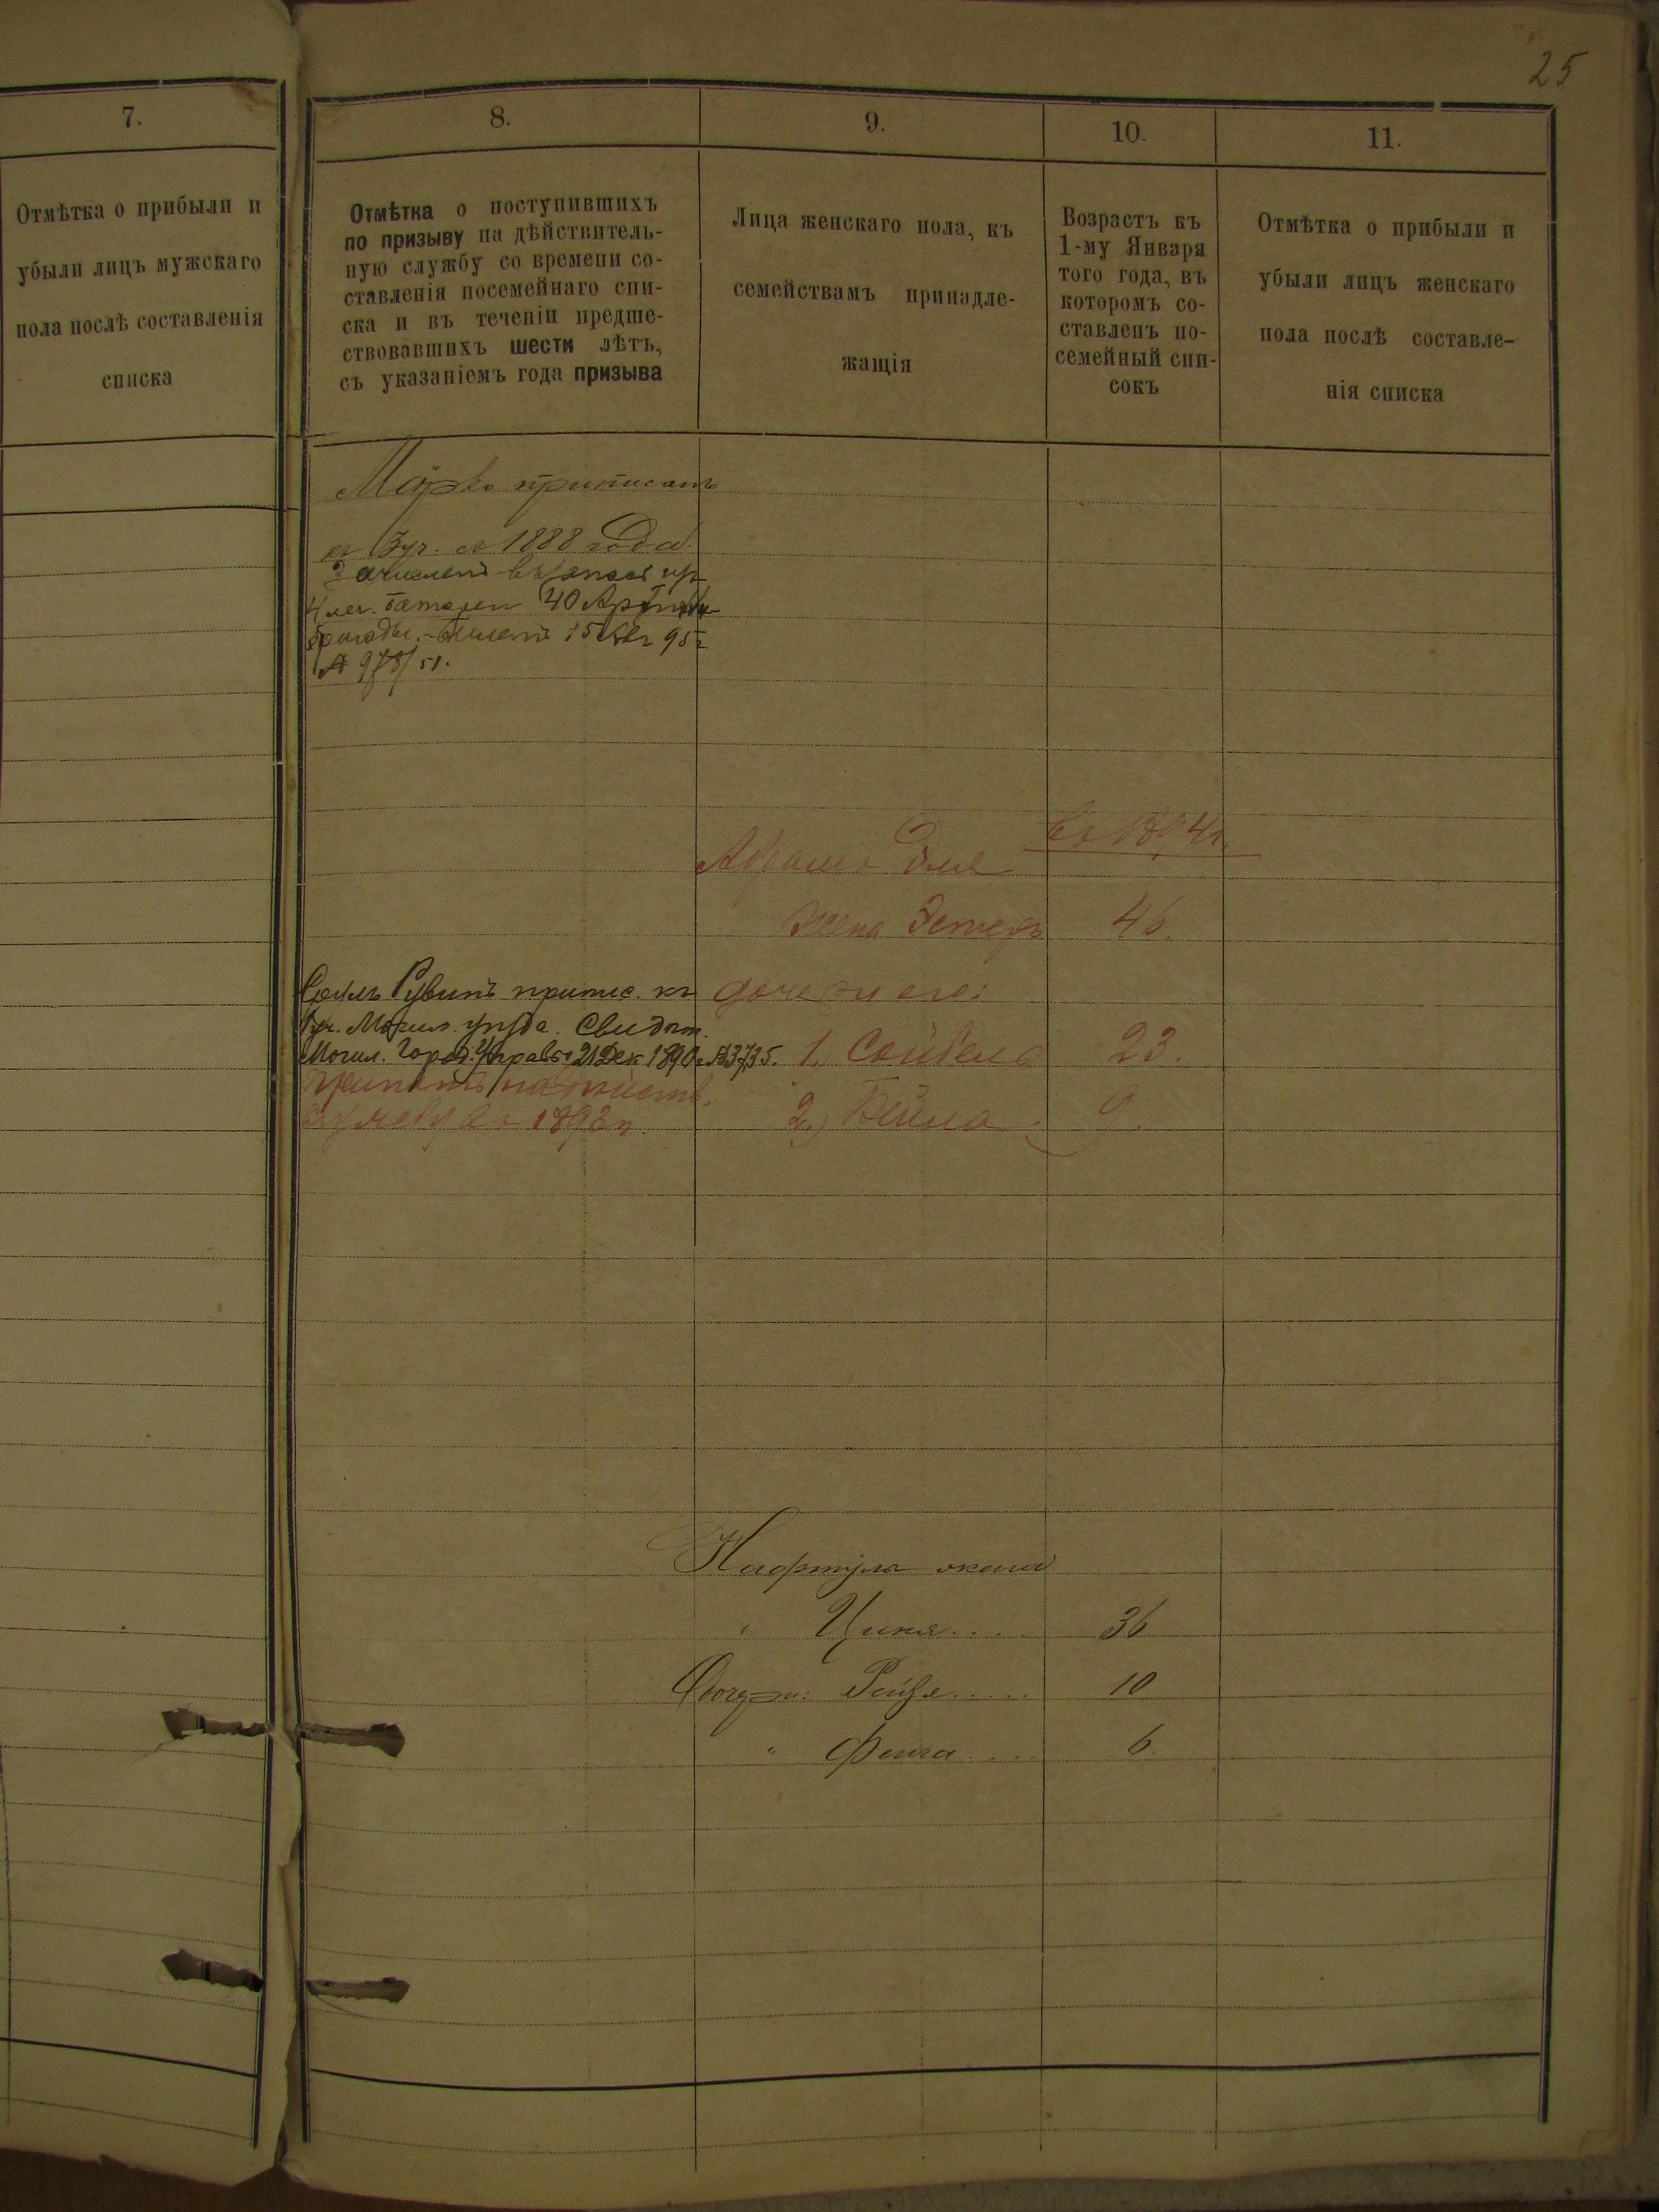 25
7.
8.
9.
10.
11.
Отмѣтка о прибыли и
убыли лицъ мужскаго
пола послѣ составленія
списка
Отмѣтка о поступившихъ
по призыву на дѣйствитель-
ную службу со времени со-
ставленія посемейнаго спи-
ска и въ теченіи предше-
ствовавшихъ шести лѣтъ,
съ указаніемъ года призыва
Лица женскаго пола, къ
семействамъ принадле-
жащія
Возрастъ къ
1-му Января
того года, въ
которомъ со-
ставленъ по-
семейный спи-
сокъ
Отмѣтка о прибыли и
убыли лицъ женскаго
пола послѣ составле-
нія списка
приписанъ
къ 3 уч. съ 1888 года
Зачисленъ въ запасъ из
батареи 40 Арт
бригады. Билетъ 15 95 г
№ 978/51.
въ 1894 г.
Абрамъ Эля
Жена Эстеръ 46.
Сруль Рувинъ припис. къ
1 уч. Могил. уѣзда. Свидѣт.
Могил. Город. Управы 21 Дек 1890 г. №3735.
въ 1892 г.
дочери его:
1., 23.
2.) Бейла 9.
Нафтула жена
Циня.... 36
Дочери: Рейзя..... 10
" Фейга.... 6